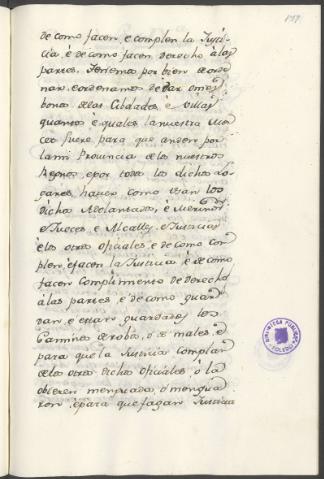 de como facen, e complen la Justi-
cia, è de como facen derecho à las
partes. Tenemos por bien de orde
nar, e ordenamos de Dar omes
bonos de las Cibdades è villas
quantos è quales la nuestra Mer
ced fuere, para que anden por
la mi Provincia de los nuestros
Regnos, e por todos los dichos Lo-
gares, haver como usan los
dichos Adelantados, è Merinos
è Jueces, e Alcalles, è Justicias
e los otros oficiales, e de como con
plen, è facen la Justicia è de como
facen complimiento de derecho
à las partes, e de como guar
dan, e estan guardados los
Caminos de robos, è de males, è
para que la Justicia complan
de los otros dichos oficiales, ò la
obieren menguado, ò mengua
ren, è para que fagan Justicia
BIBLIOTECA PUBLICA
TOLEDO